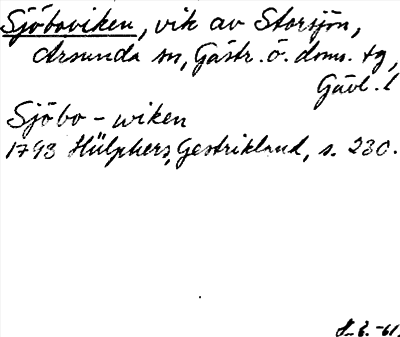 Sjöboviken, vik av Storsjön,
Årsunda sn, Gästr. ö. doms. tg,
Gävl. l
Sjöbo-wiken
1793 Hülphers, Gestrikland, s. 230.